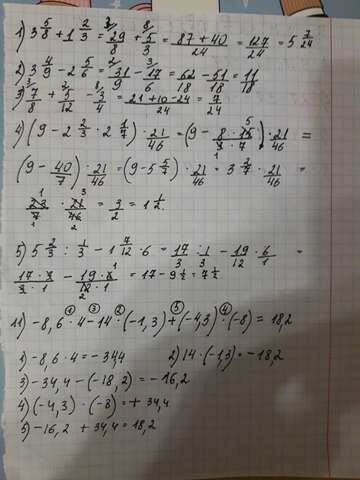 1) 3 5/8 + 1 2/3 = 29/8 + 5/3 = 87 + 40/24 = 127/24 = 5 7/24
2) 3 4/9 - 2 5/6 = 31/9 - 17/6 = 62/18 - 51/18 = 11/18
3) 7/8 + 5/12 - 3/4 = 21 + 10 - 24/24 = 7/24
4) (9 - 2 2/3 · 2 1/7) · 21/46 = (9 - 8 · 15/3 · 7) · 21/46 =
(9 - 40/7) · 21/46 = (9 - 5 5/7) · 21/46 = 3 2/7 · 21/46 =
23/7 · 21/46 = 3/2 = 1 1/2.
5) 5 2/3 : 1/3 - 1 7/12 · 6 = 17/3 : 1/3 - 19/12 · 6/1 =
17 · 3/3 · 1 - 19 · 6/12 · 1 = 17 - 9 1/2 = 7 1/2
11) -8,6 · 4 - 14 · (-1,3) + (-4,3) · (-8) = 18,2
1) -8,6 · 4 = -34,4 2) 14 · (-1,3) = -18,2
3) -34,4 - (-18,2) = -16,2
4) (-4,3) · (-8) = + 34,4
5) -16,2 + 34,4 = 18,2